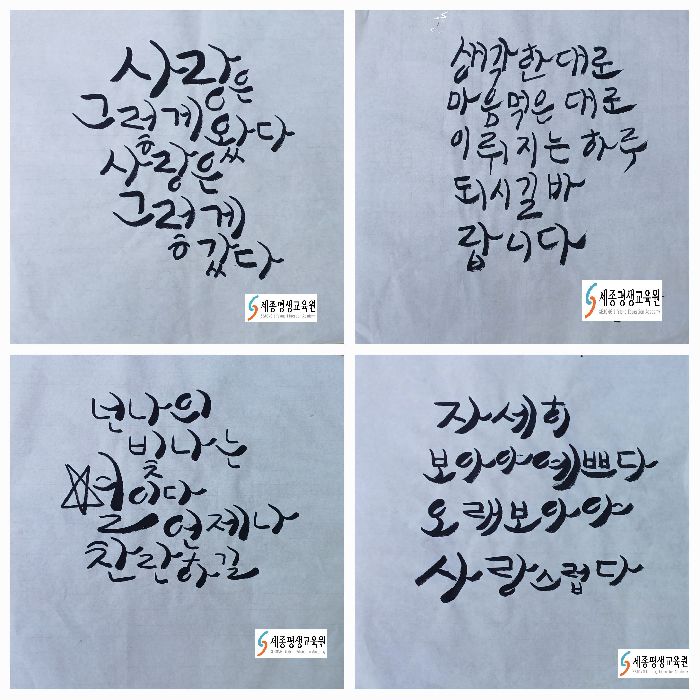 사랑은
그렇게 왔다
사랑은
그렇게
갔다
세종평생교육원
생각한대로
마음먹은 대로
이뤄지는 하루
되시길 바
랍니다
세종평생교육원
넌 나의
빛나는
별이다
언제나
찬란하길
세종평생교육원
자세히
보아야 예쁘다
오래보아야
사랑스럽다
세종평생교육원